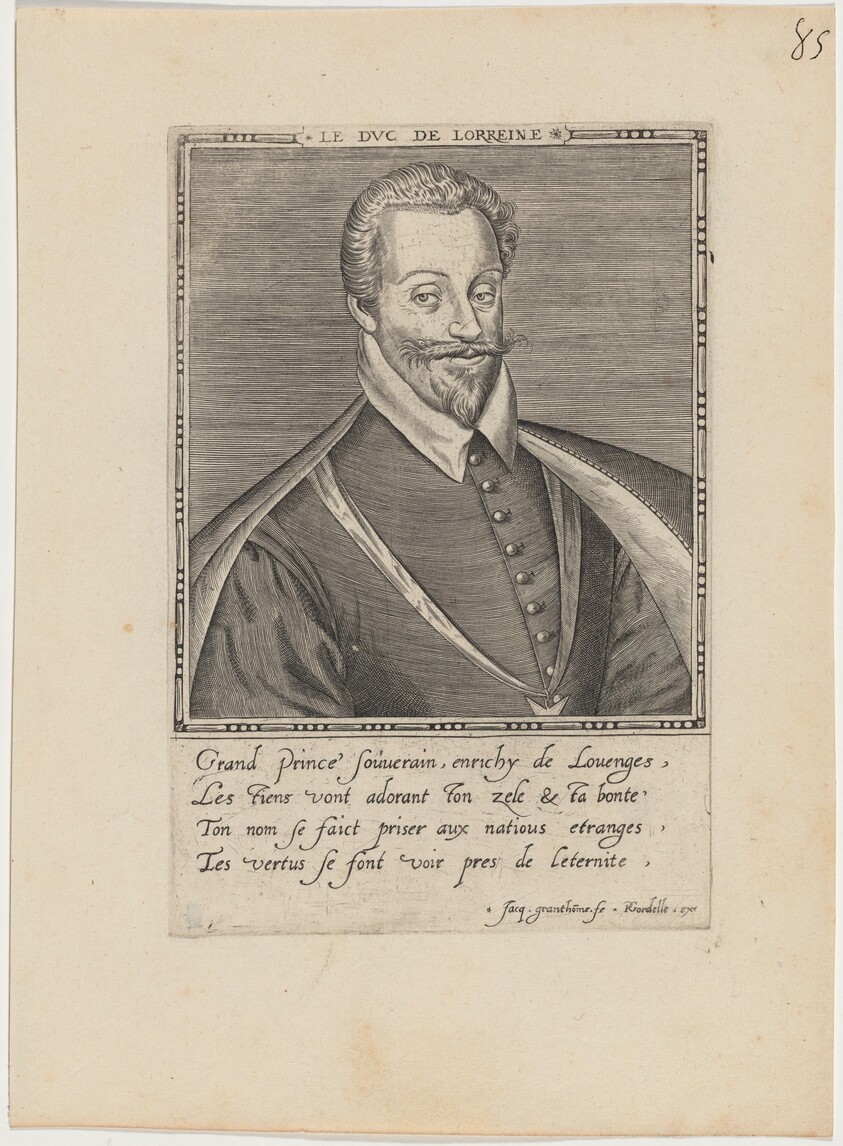 85
* LE DVC DE LORREINE *
Grand Prince souuerain, enrichy de Louenges,
Les tiens vont adorant ton zele & ta bonte
Ton nom se faict priser aux natious etranges,
Tes vertus se font voir pres de leternite,
* Jacq. granthōme. fe * RGordelle. ex